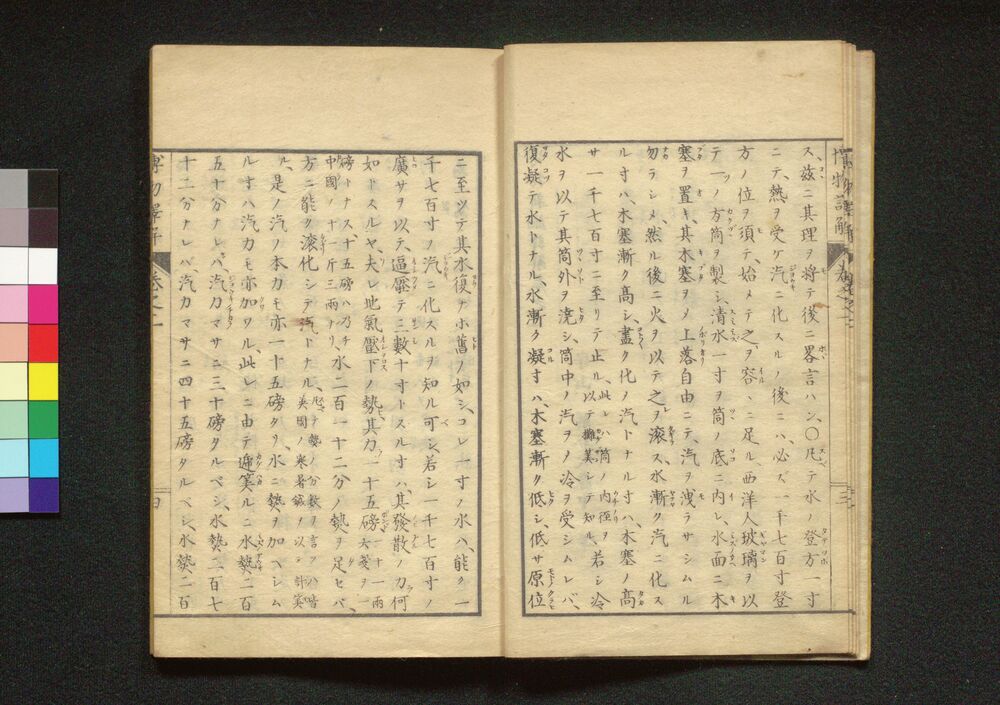 ス、茲ニ其理ヲ将テ後ニ畧言ハン、〇凡テ水ノ登方一寸
ニテ、熱ヲ受ケ汽ニ化スルノ後ニハ、必ズ一千七百寸登
方ノ位ヲ須テ、始メテ之ヲ容ヽニ足ル、西洋人玻璃ヲ以
テ一ノ方筒ヲ製シ、清水一寸ヲ筒ノ底ニ内レ、水面ニ木
塞ヲ置キ、其木塞ヲメ上落自由ニテ、汽ヲ洩ラサシムル
勿ラシメ、然ル後ニ火ヲ以テ之ヲ滚ス、水漸ク汽ニ化ス
ル寸ハ、木塞漸ク高シ、盡ク化ノ汽トナル寸ハ、木塞ノ高
サ一千七百寸ニ至リテ止ル、此レ筒ノ内徑ヲ以テ推算シテ知ル、若シ冷
水ヲ以テ其筒外ヲ澆シ、筒中ノ汽ヲノ冷ヲ受シムレバ、
復凝テ水トナル、水漸ク凝寸ハ、木塞漸ク低シ、低サ原位
ニ至ツテ其水復ナホ舊ノ如シ、コレ一寸ノ水ハ、能ク一
千七百寸ノ汽ニ化スルヲ知ル可シ、若シ一千七百寸ノ
廣サヲ以テ、逼壓テ三數十寸トスル寸ハ、其發散ノ力何
如トスルヤ、夫レ地氣壓下ノ勢、其力一十五磅大畧ヲ一十一兩
磅トナス十五磅ハ乃チ中國ノ十一斤三兩ナリ、水二百一十二分ノ熱ヲ足セバ、
方ニ能ク滚化シテ汽トナル、凡テ熱ノ分數ヲ言フハ皆英國ノ寒暑鍼ヲ以テ計算ス
ル、是ノ汽ノ本力モ亦一十五磅タリ、水ニ熱ヲ加ヘシム
ル寸ハ汽力モ亦加ワル、此レニ由テ遞算ルニ水熱二百
五十分ナレバ、汽力マサニ三十磅タルベシ、水熱二百七
十二分ナレバ、汽力マサニ四十五磅タルベシ、水熱二百